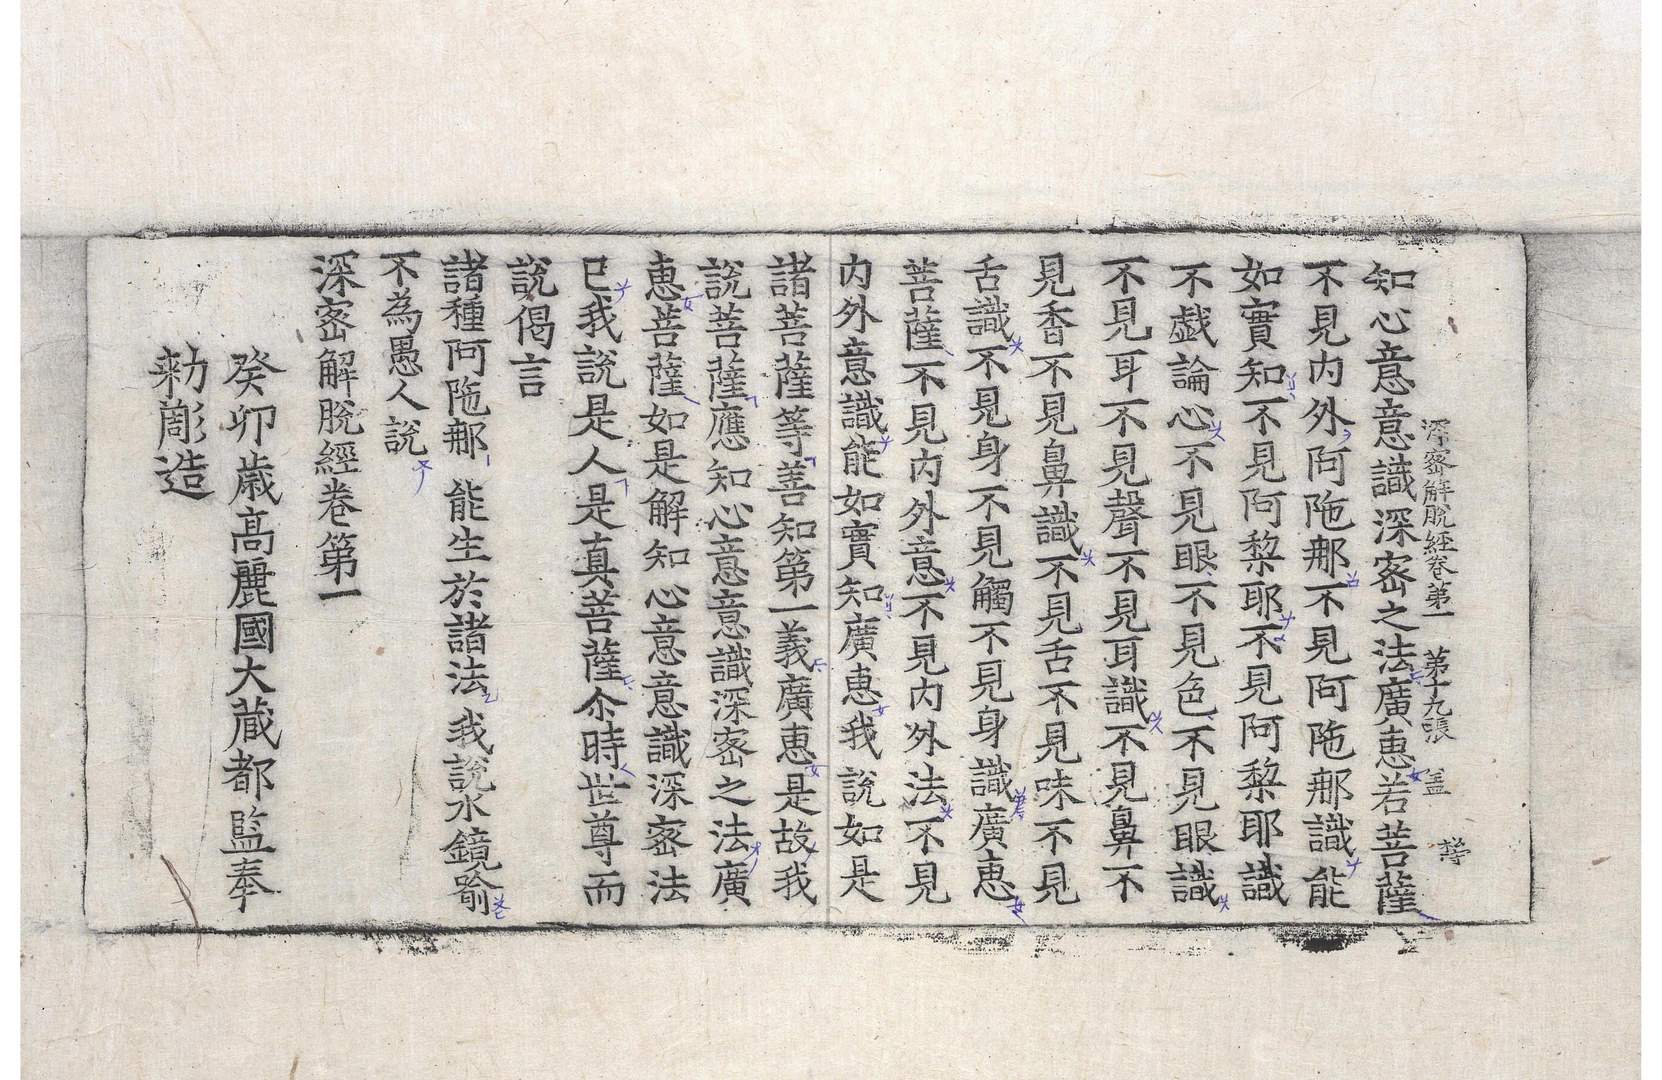 深密解脫經卷第一 第十九張 盖
知心意意識深密之法廣恵若菩薩
不見内外阿陁那不見阿陁那識能
如實知不見阿黎耶不見阿黎耶識
不戯論心不見眼不見色不見眼識
不見耳不見聲不見耳識不見鼻不
見香不見鼻識不見舌不見味不見
舌識不見身不見觸不見身識廣恵
菩薩不見内外意不見内外法不見
内外意識能如實知廣恵我說如是
諸菩薩等善知第一義廣恵是故我
說菩薩應知心意意識深密之法廣
恵菩薩如是解知心意意識深密法
已我說是人是真菩薩尒時世尊而
說偈言
諸種阿陁那 能生於諸法 我說水鏡喻
不為愚人說
深密解脫經卷第一
癸卯歳高麗國大蔵都監奉
勑彫造